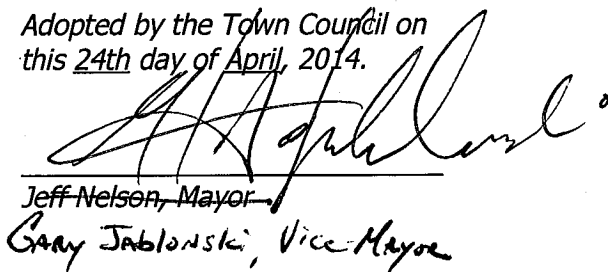 Adopted by the Town Council on
this 24th day of April, 2014.
Jeff Nelson, Mayor
Gary Jablonski, Vice Mayor